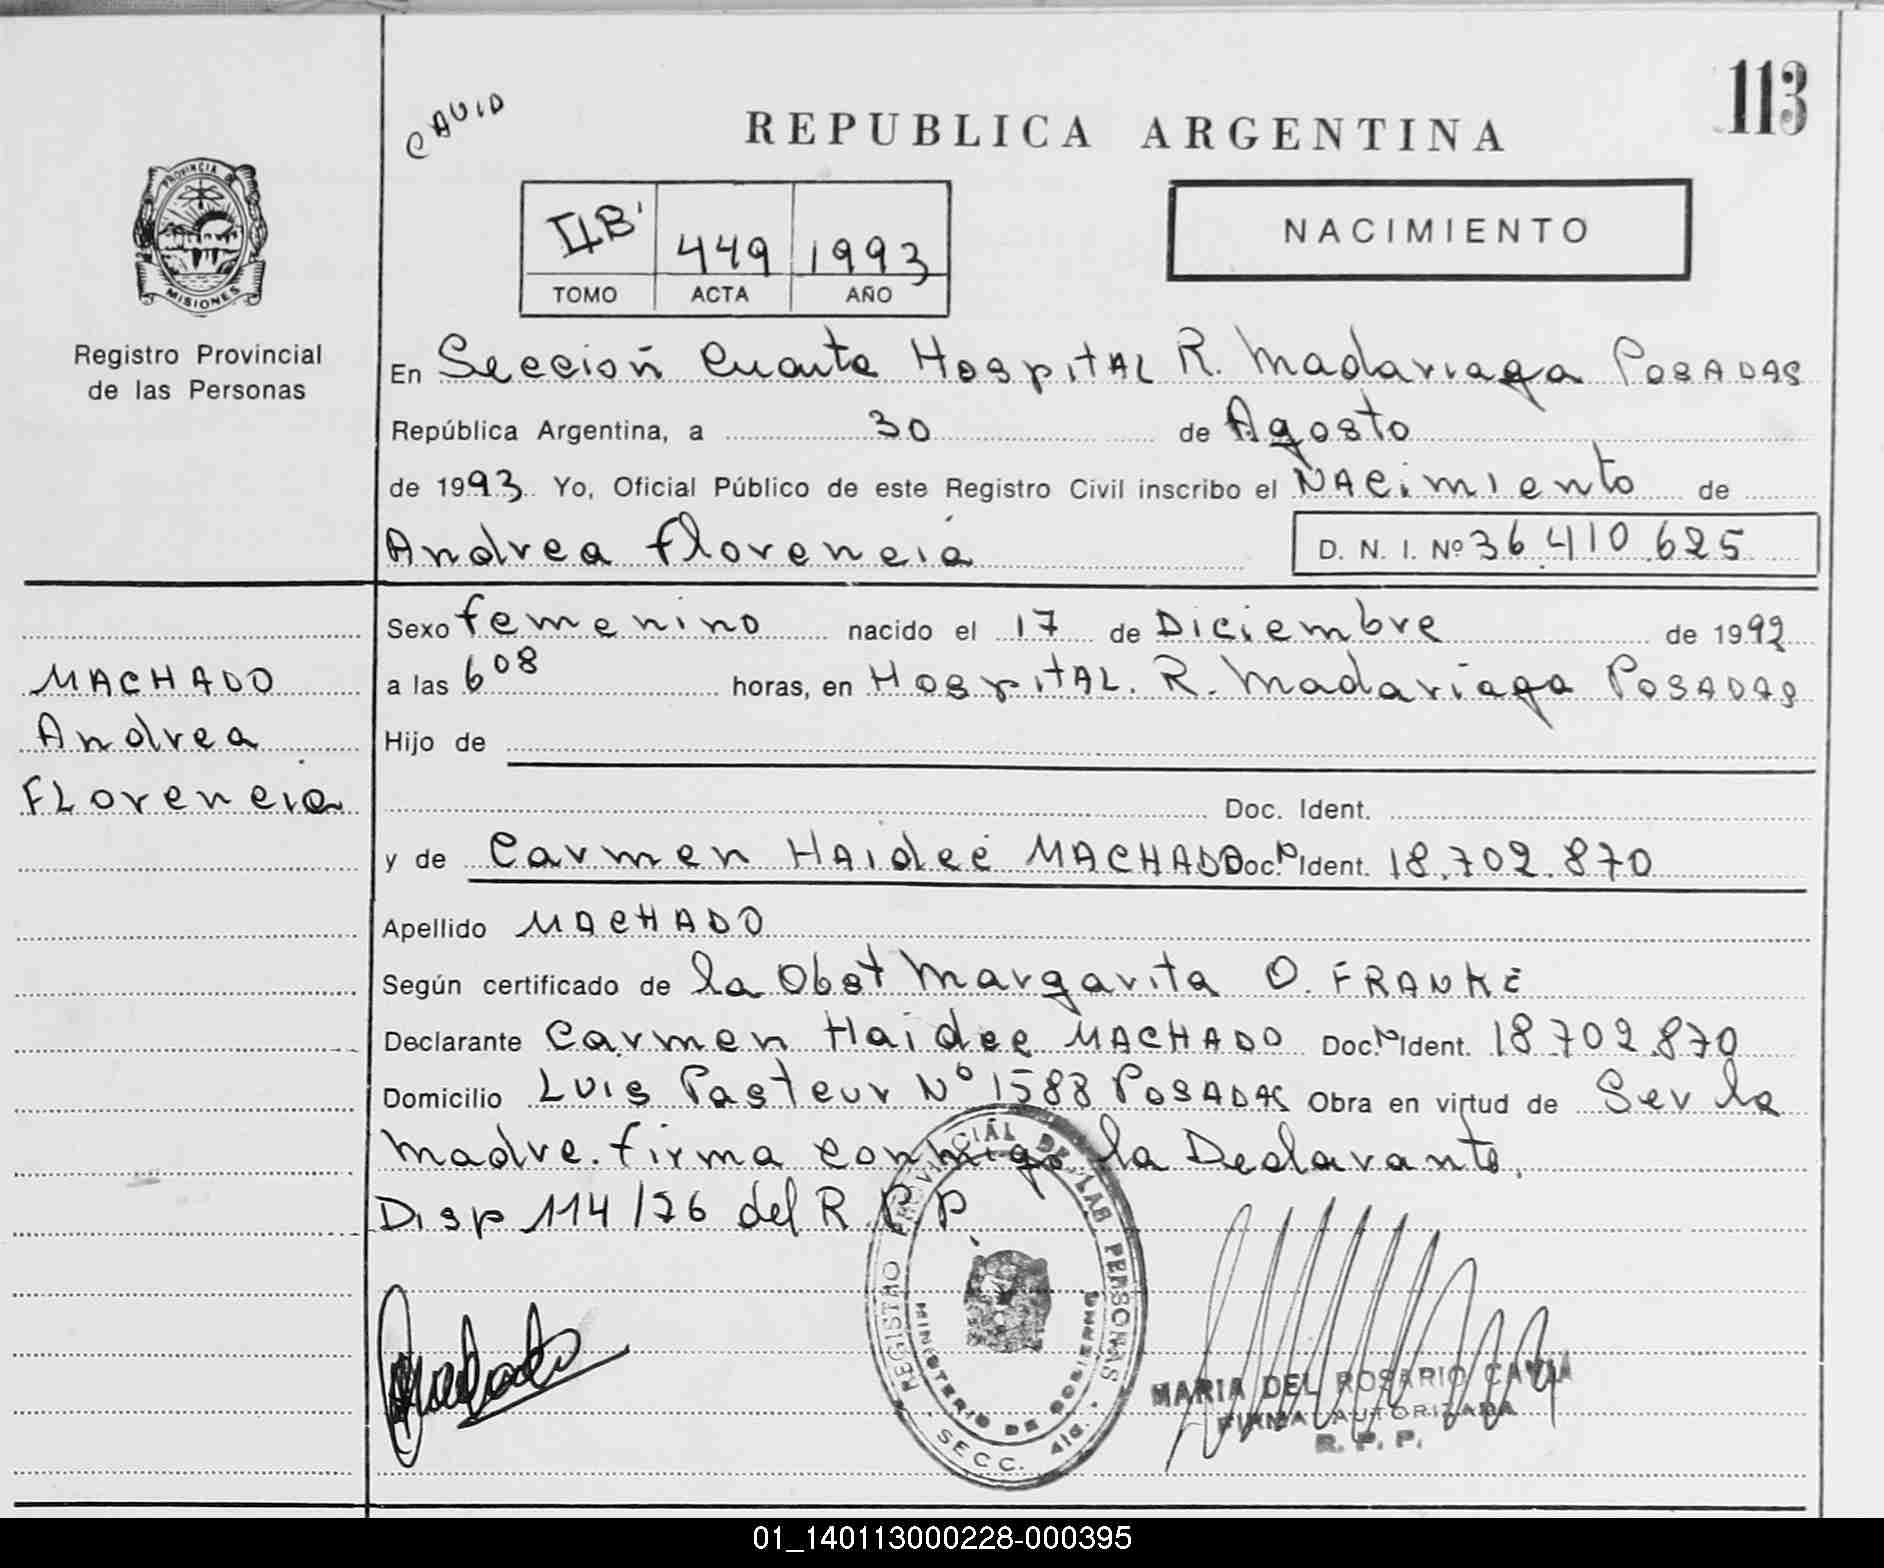 113
CAVID
REPUBLICA ARGENTINA
PROVINCIA DE
MISIONES
Registro Provincial
de las Personas
II B' 449 1993
TOMO ACTA AÑO
NACIMIENTO
En Sección Cuarta Hospital R. Madariaga POSADAS
República Argentina, a 30 de Agosto
de 1993 Yo, Oficial Público de este Registro Civil inscribo el NACimiento de
Andrea florencia D. N. I. Nº 36.410.625
MACHADO
Andrea
FLorencia
Sexo femenino nacido el 17 de Diciembre de 1992
a las 6 08 horas, en HospitAL. R. Madariaga POSADAS
Hijo de
Doc. Ident.
y de Carmen HAideé MACHADO Doc. N Ident. 18.702.870
Apellido MACHADO
Según certificado de la Obst Margarita O. FRANKE
Declarante Carmen Haidee MACHADO Doc. N Ident. 18.702.870
Domicilio Luis Pasteur Nº 1588 POSADAS Obra en virtud de Ser la
madre. firma conmigo la Declarante.
Disp 114/76 del R.P.P.
REGISTRO PROVINCIAL DE LAS PERSONAS
MINISTERIO DE GOBIERNO
SECC. 4ta.
Machado
MARIA DEL ROSARIO CAVIA
FIRMA AUTORIZADA
R. P. P.
01_140113000228-000395